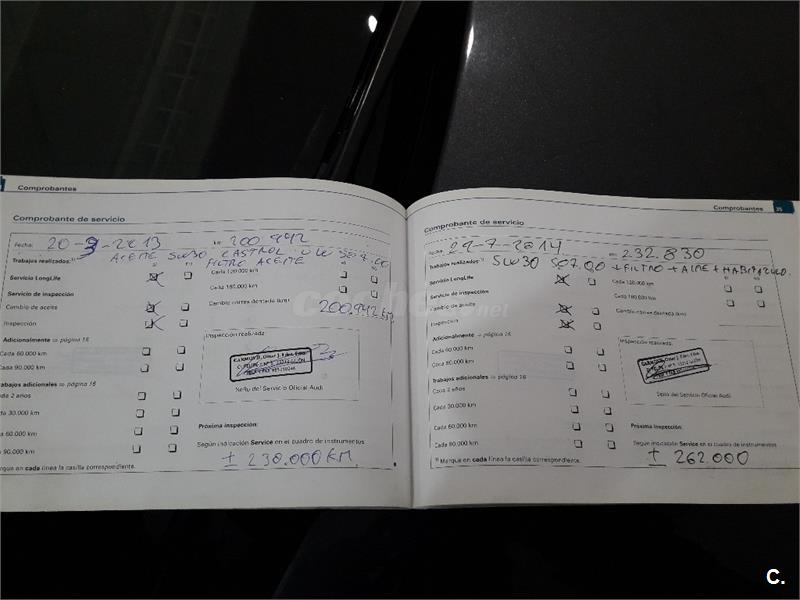 Comprobantes
Comprobante de servicio
Fecha: 20-9-2013 km 200.942
ACEITE 5W30 CASTROL VW 507.00
Trabajos realizados:
FILTRO ACEITE
Servicio LongLife
Cada 120.000 km
Cada 180.000 km
Servicio de inspección
Cambio de aceite
200.942 km
Inspección
Inspección realizada:
Adicionalmente ⇒ página 16
Cada 60.000 km
Cada 90.000 km
Sello del Servicio Oficial Audi
Trabajos adicionales ⇒ página 16
Cada 2 años
Cada 30.000 km
Cada 60.000 km
Próxima inspección:
Según indicación Service en el cuadro de instrumentos
90.000 km
± 230.000 KM
Marque en cada línea la casilla correspondiente.
Comprobantes
Comprobante de servicio
Fecha: 21-7-2014 232.830
Trabajos realizados:
5W30 507.00 + FILTRO + AIRE + HABITACULO.
Servicio LongLife
Cada 120.000 km
Cada 180.000 km
Servicio de inspección
Cambio de aceite
Inspección
Inspección realizada:
Adicionalmente ⇒ página 16
Cada 60.000 km
Cada 90.000 km
Sello del Servicio Oficial Audi
Trabajos adicionales ⇒ página 16
Cada 2 años
Cada 30.000 km
Cada 60.000 km
Próxima inspección:
Cada 90.000 km
Según indicación Service en el cuadro de instrumentos
± 262.000
Marque en cada línea la casilla correspondiente.
coches.net
C.